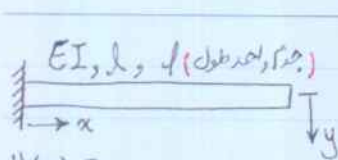 EI, l, ρ (جرم واحد طول)
x
y